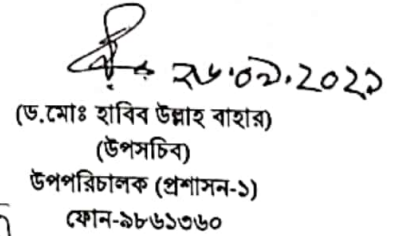 ২৬.০৯.২০২১
(ড.মোঃ হাবিব উল্লাহ বাহার)
(উপসচিব)
উপপরিচালক (প্রশাসন-১)
ফোন-৯৮৬১৩৬০